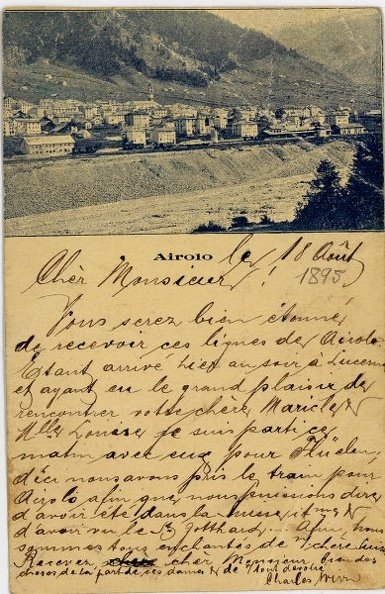 Airolo le 18 Août
Cher Monsieur! 1895
Vous serez bien étonné
de recevoir ces lignes de Airolo.
Etant arrivé hier au soir à Lucerne
et ayant eu le grand plaisir de
rencontrer votre chère
Mlle Louise je suis parti ce
matin avec eux pour Flüelen,
d'ici nous avons pris le train pour
Airolo afin que nous puissions dire
d'avoir été dans la Suisse et
d'avoir vu le St Gotthard... Enfin, nous
sommes tous enchantés de chère Suisse
Recevez cher Monsieur bien des
choses de la part de ces dames & de
Charles